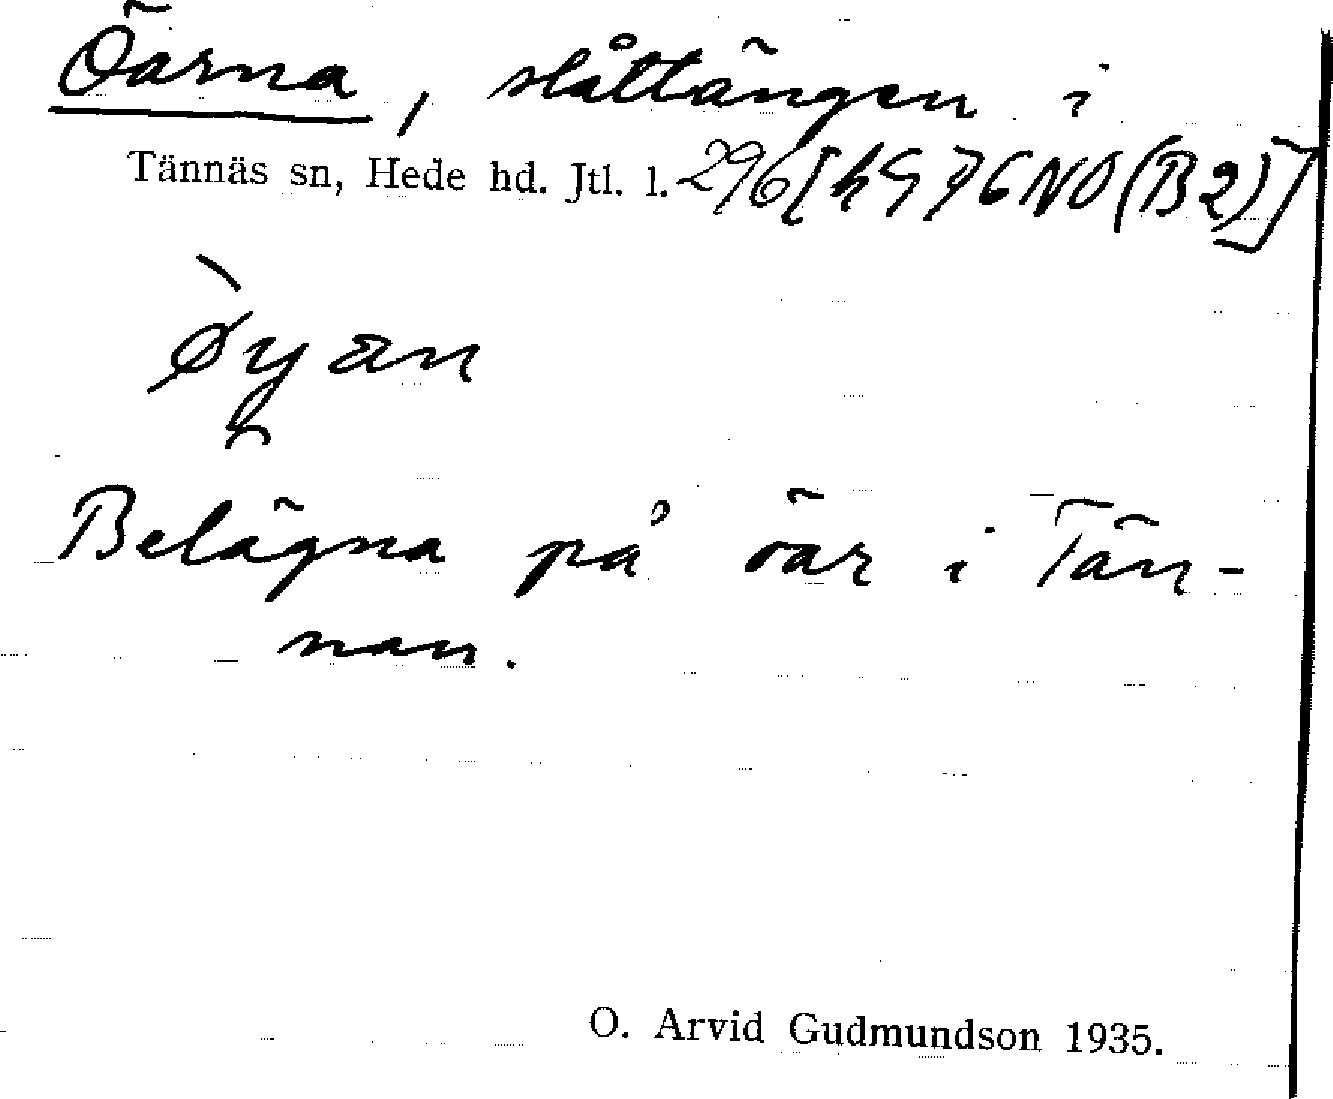 Öarna, slåttängen i
Tännäs sn, Hede hd. Jtl. l. 296 [h976NO(B2)]
`øyan
Belägna på öar i Tän-
nan.
O. Arvid Gudmundson 1935.